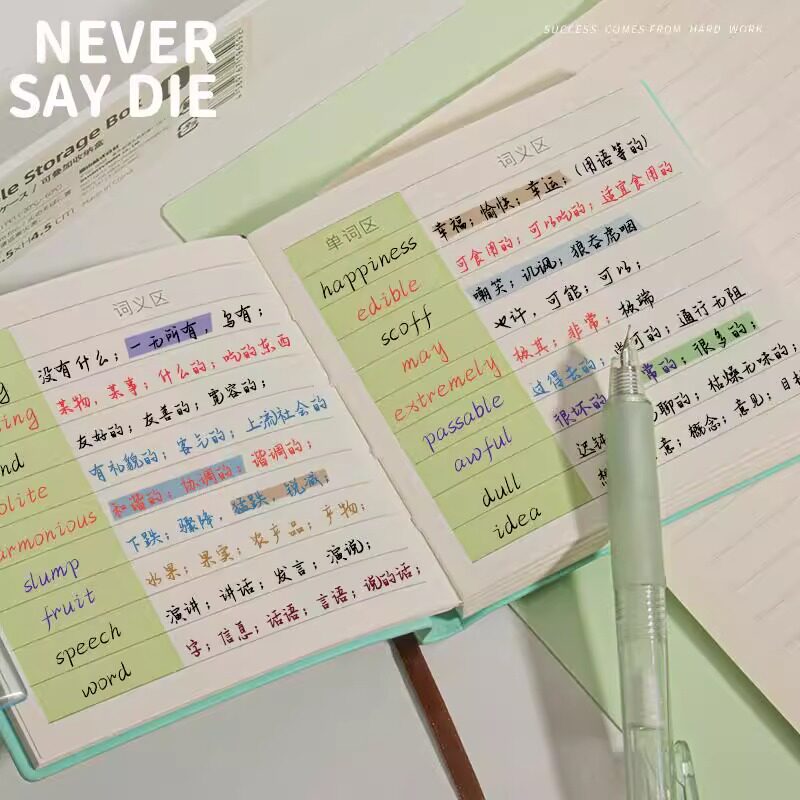 NEVER
SAY DIE
SUCCESS COMES FROM HARD WORK
le Storage Bo
ケース / 可叠加收纳盒
Made in China
.5×H4.5cm
词义区
没有什么；一无所有，乌有；
ing 某物，某事；什么的；吃的东西
nd 友好的；友善的；宽容的；
olite 有礼貌的；客气的；上流社会的
armonious 和谐的；协调的；谐调的；
slump 下跌；骤降，猛跌，锐减；
fruit 如果；果实；农产品；产物；
speech 演讲；讲话；发言；演说；
word 字；信息；话语；言语；说的话；
单词区 词义区
happiness 幸福；愉快；幸运；(用语等的)
edible 可食用的；可以吃的；适宜食用的
scoff 嘲笑；讥讽；狼吞虎咽
may 也许，可能；可以；
extremely 极其；非常；极端
passable 过得去的；可的；通行无阻
awful 很坏的 常的；很多的；
dull 迟钝 聊的；枯燥无味的；
idea 想 意；概念；意见；目标